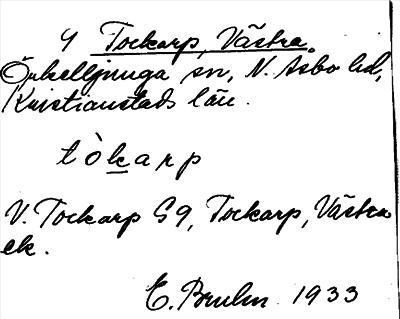 4 Tockarp, Västra.
Örkelljunga sn, N. Åsbo hd,
Kristianstads län.
tòkarp
V. Tockarp S9, Tockarp, Västra
ek.
E. Bruhn 1933